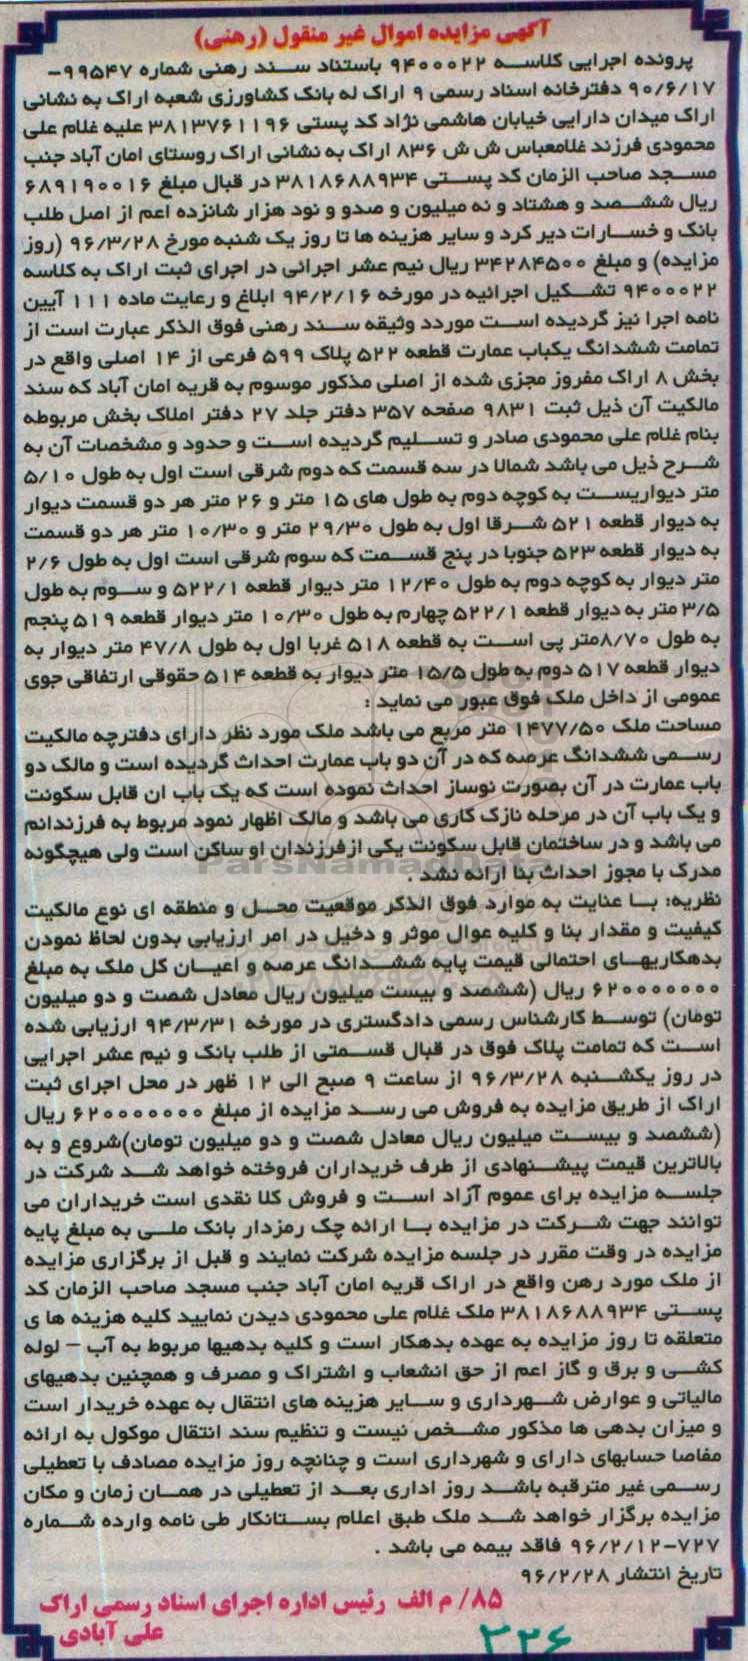 آگهی مزایده اموال غیر منقول (رهنی)
پرونده اجرایی کلاسه ۹۴۰۰۰۲۲ باستناد سند رهنی شماره ۹۹۵۴۷-
۹۰/۶/۱۷ دفترخانه اسناد رسمی ۹ اراک له بانک کشاورزی شعبه اراک به نشانی
اراک میدان دارایی خیابان هاشمی نژاد کد پستی ۳۸۱۳۷۶۱۱۹۶ علیه غلام علی
محمودی فرزند غلامعباس ش ش ۸۳۶ اراک به نشانی اراک روستای امان آباد جنب
مسجد صاحب الزمان کد پستی ۳۸۱۸۶۸۸۹۳۴ در قبال مبلغ ۶۸۹۱۹۰۰۱۶
ریال ششصد و هشتاد و نه میلیون و صدو و نود هزار شانزده اعم از اصل طلب
بانک و خسارات دیر کرد و سایر هزینه ها تا روز یک شنبه مورخ ۹۶/۳/۲۸ (روز
مزایده) و مبلغ ۳۴۲۸۴۵۰۰ ریال نیم عشر اجرائی در اجرای ثبت اراک به کلاسه
۹۴۰۰۰۲۲ تشکیل اجرائیه در مورخه ۹۴/۲/۱۶ ابلاغ و رعایت ماده ۱۱۱ آیین
نامه اجرا نیز گردیده است موردد وثیقه سند رهنی فوق الذکر عبارت است از
تمامت ششدانگ یکباب عمارت قطعه ۵۲۲ پلاک ۵۹۹ فرعی از ۱۴ اصلی واقع در
بخش ۸ اراک مفروز مجزی شده از اصلی مذکور موسوم به قریه امان آباد که سند
مالکیت آن ذیل ثبت ۹۸۳۱ صفحه ۳۵۷ دفتر جلد ۲۷ دفتر املاک بخش مربوطه
بنام غلام علی محمودی صادر و تسلیم گردیده است و حدود و مشخصات آن به
شرح ذیل می باشد شمالا در سه قسمت که دوم شرقی است اول به طول ۵/۱۰
متر دیواریست به کوچه دوم به طول های ۱۵ متر و ۲۶ متر هر دو قسمت دیوار
به دیوار قطعه ۵۲۱ شرقا اول به طول ۲۹/۳۰ متر و ۱۰/۳۰ متر هر دو قسمت
به دیوار قطعه ۵۲۳ جنوبا در پنج قسمت که سوم شرقی است اول به طول ۲/۶
متر دیوار به کوچه دوم به طول ۱۲/۴۰ متر دیوار قطعه ۵۲۲/۱ و سوم به طول
۳/۵ متر به دیوار قطعه ۵۲۲/۱ چهارم به طول ۱۰/۳۰ متر دیوار قطعه ۵۱۹ پنجم
به طول ۸/۷۰متر پی است به قطعه ۵۱۸ غربا اول به طول ۴۷/۸ متر دیوار به
دیوار قطعه ۵۱۷ دوم به طول ۱۵/۵ متر دیوار به قطعه ۵۱۴ حقوقی ارتفاقی جوی
عمومی از داخل ملک فوق عبور می نماید :
مساحت ملک ۱۴۷۷/۵۰ متر مربع می باشد ملک مورد نظر دارای دفترچه مالکیت
رسمی ششدانگ عرصه که در آن دو باب عمارت احداث گردیده است و مالک دو
باب عمارت در آن بصورت نوساز احداث نموده است که یک باب ان قابل سکونت
و یک باب آن در مرحله نازک کاری می باشد و مالک اظهار نمود مربوط به فرزندانم
می باشد و در ساختمان قابل سکونت یکی ازفرزندان او ساکن است ولی هیچگونه
مدرک با مجوز احداث بنا ارائه نشد .
نظریه: با عنایت به موارد فوق الذکر موقعیت محل و منطقه ای نوع مالکیت
کیفیت و مقدار بنا و کلیه عوال موثر و دخیل در امر ارزیابی بدون لحاظ نمودن
بدهکاریهای احتمالی قیمت پایه ششدانگ عرصه و اعیان کل ملک به مبلغ
۶۲۰۰۰۰۰۰۰ ریال (ششصد و بیست میلیون ریال معادل شصت و دو میلیون
تومان) توسط کارشناس رسمی دادگستری در مورخه ۹۴/۳/۳۱ ارزیابی شده
است که تمامت پلاک فوق در قبال قسمتی از طلب بانک و نیم عشر اجرایی
در روز یکشنبه ۹۶/۳/۲۸ از ساعت ۹ صبح الی ۱۲ ظهر در محل اجرای ثبت
اراک از طریق مزایده به فروش می رسد مزایده از مبلغ ۶۲۰۰۰۰۰۰۰ ریال
(ششصد و بیست میلیون ریال معادل شصت و دو میلیون تومان)شروع و به
بالاترین قیمت پیشنهادی از طرف خریداران فروخته خواهد شد شرکت در
جلسه مزایده برای عموم آزاد است و فروش کلا نقدی است خریداران می
توانند جهت شرکت در مزایده با ارائه چک رمزدار بانک ملی به مبلغ پایه
مزایده در وقت مقرر در جلسه مزایده شرکت نمایند و قبل از برگزاری مزایده
از ملک مورد رهن واقع در اراک قریه امان آباد جنب مسجد صاحب الزمان کد
پستی ۳۸۱۸۶۸۸۹۳۴ ملک غلام علی محمودی دیدن نمایید کلیه هزینه ها ی
متعلقه تا روز مزایده به عهده بدهکار است و کلیه بدهیها مربوط به آب – لوله
کشی و برق و گاز اعم از حق انشعاب و اشتراک و مصرف و همچنین بدهیهای
مالیاتی و عوارض شهرداری و سایر هزینه های انتقال به عهده خریدار است
و میزان بدهی ها مذکور مشخص نیست و تنظیم سند انتقال موکول به ارائه
مفاصا حسابهای دارای و شهرداری است و چنانچه روز مزایده مصادف با تعطیلی
رسمی غیر مترقبه باشد روز اداری بعد از تعطیلی در همان زمان و مکان
مزایده برگزار خواهد شد ملک طبق اعلام بستانکار طی نامه وارده شماره
۷۲۷-۹۶/۲/۱۲ فاقد بیمه می باشد .
تاریخ انتشار ۹۶/۲/۲۸
۸۵/ م الف رئیس اداره اجرای اسناد رسمی اراک
علی آبادی
۳۲۶
ParsNamadData